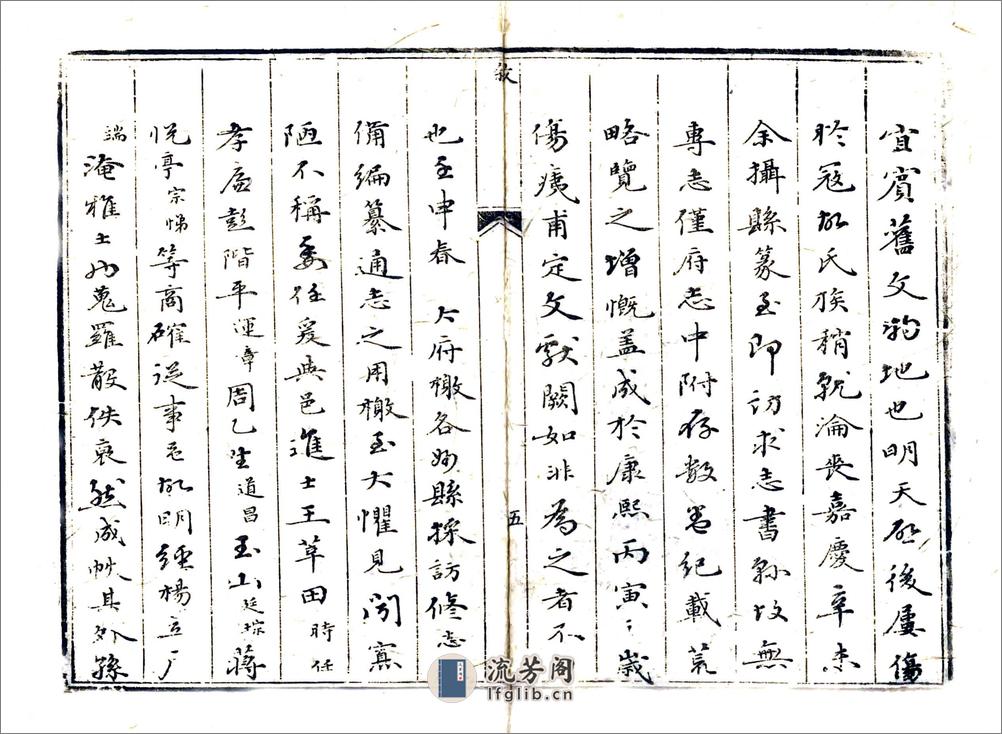 宜賓舊文物地也明天啟後屢傷
於冦故氏族稍就淪喪嘉慶辛未
余攝縣篆至即訪求志書縣故無
專志僅府志中附存數卷紀載荒
略覽之增慨盖成於康熙丙寅〻歲
傷痍甫定文獻闕如非為之者不
敘
五
也壬申春 大府檄各州縣採訪修志
備編纂通志之用檄至大懼見聞寡
陋不稱委任爰與邑進士王草田時任
孝廉彭階平運章周乙生道昌玉山廷琮蔣
悅亭宗悌等商確從事邑故明經楊立厂
端淹雅士也蒐羅散佚裒然成帙其外孫
流芳阁
lfglib.cn